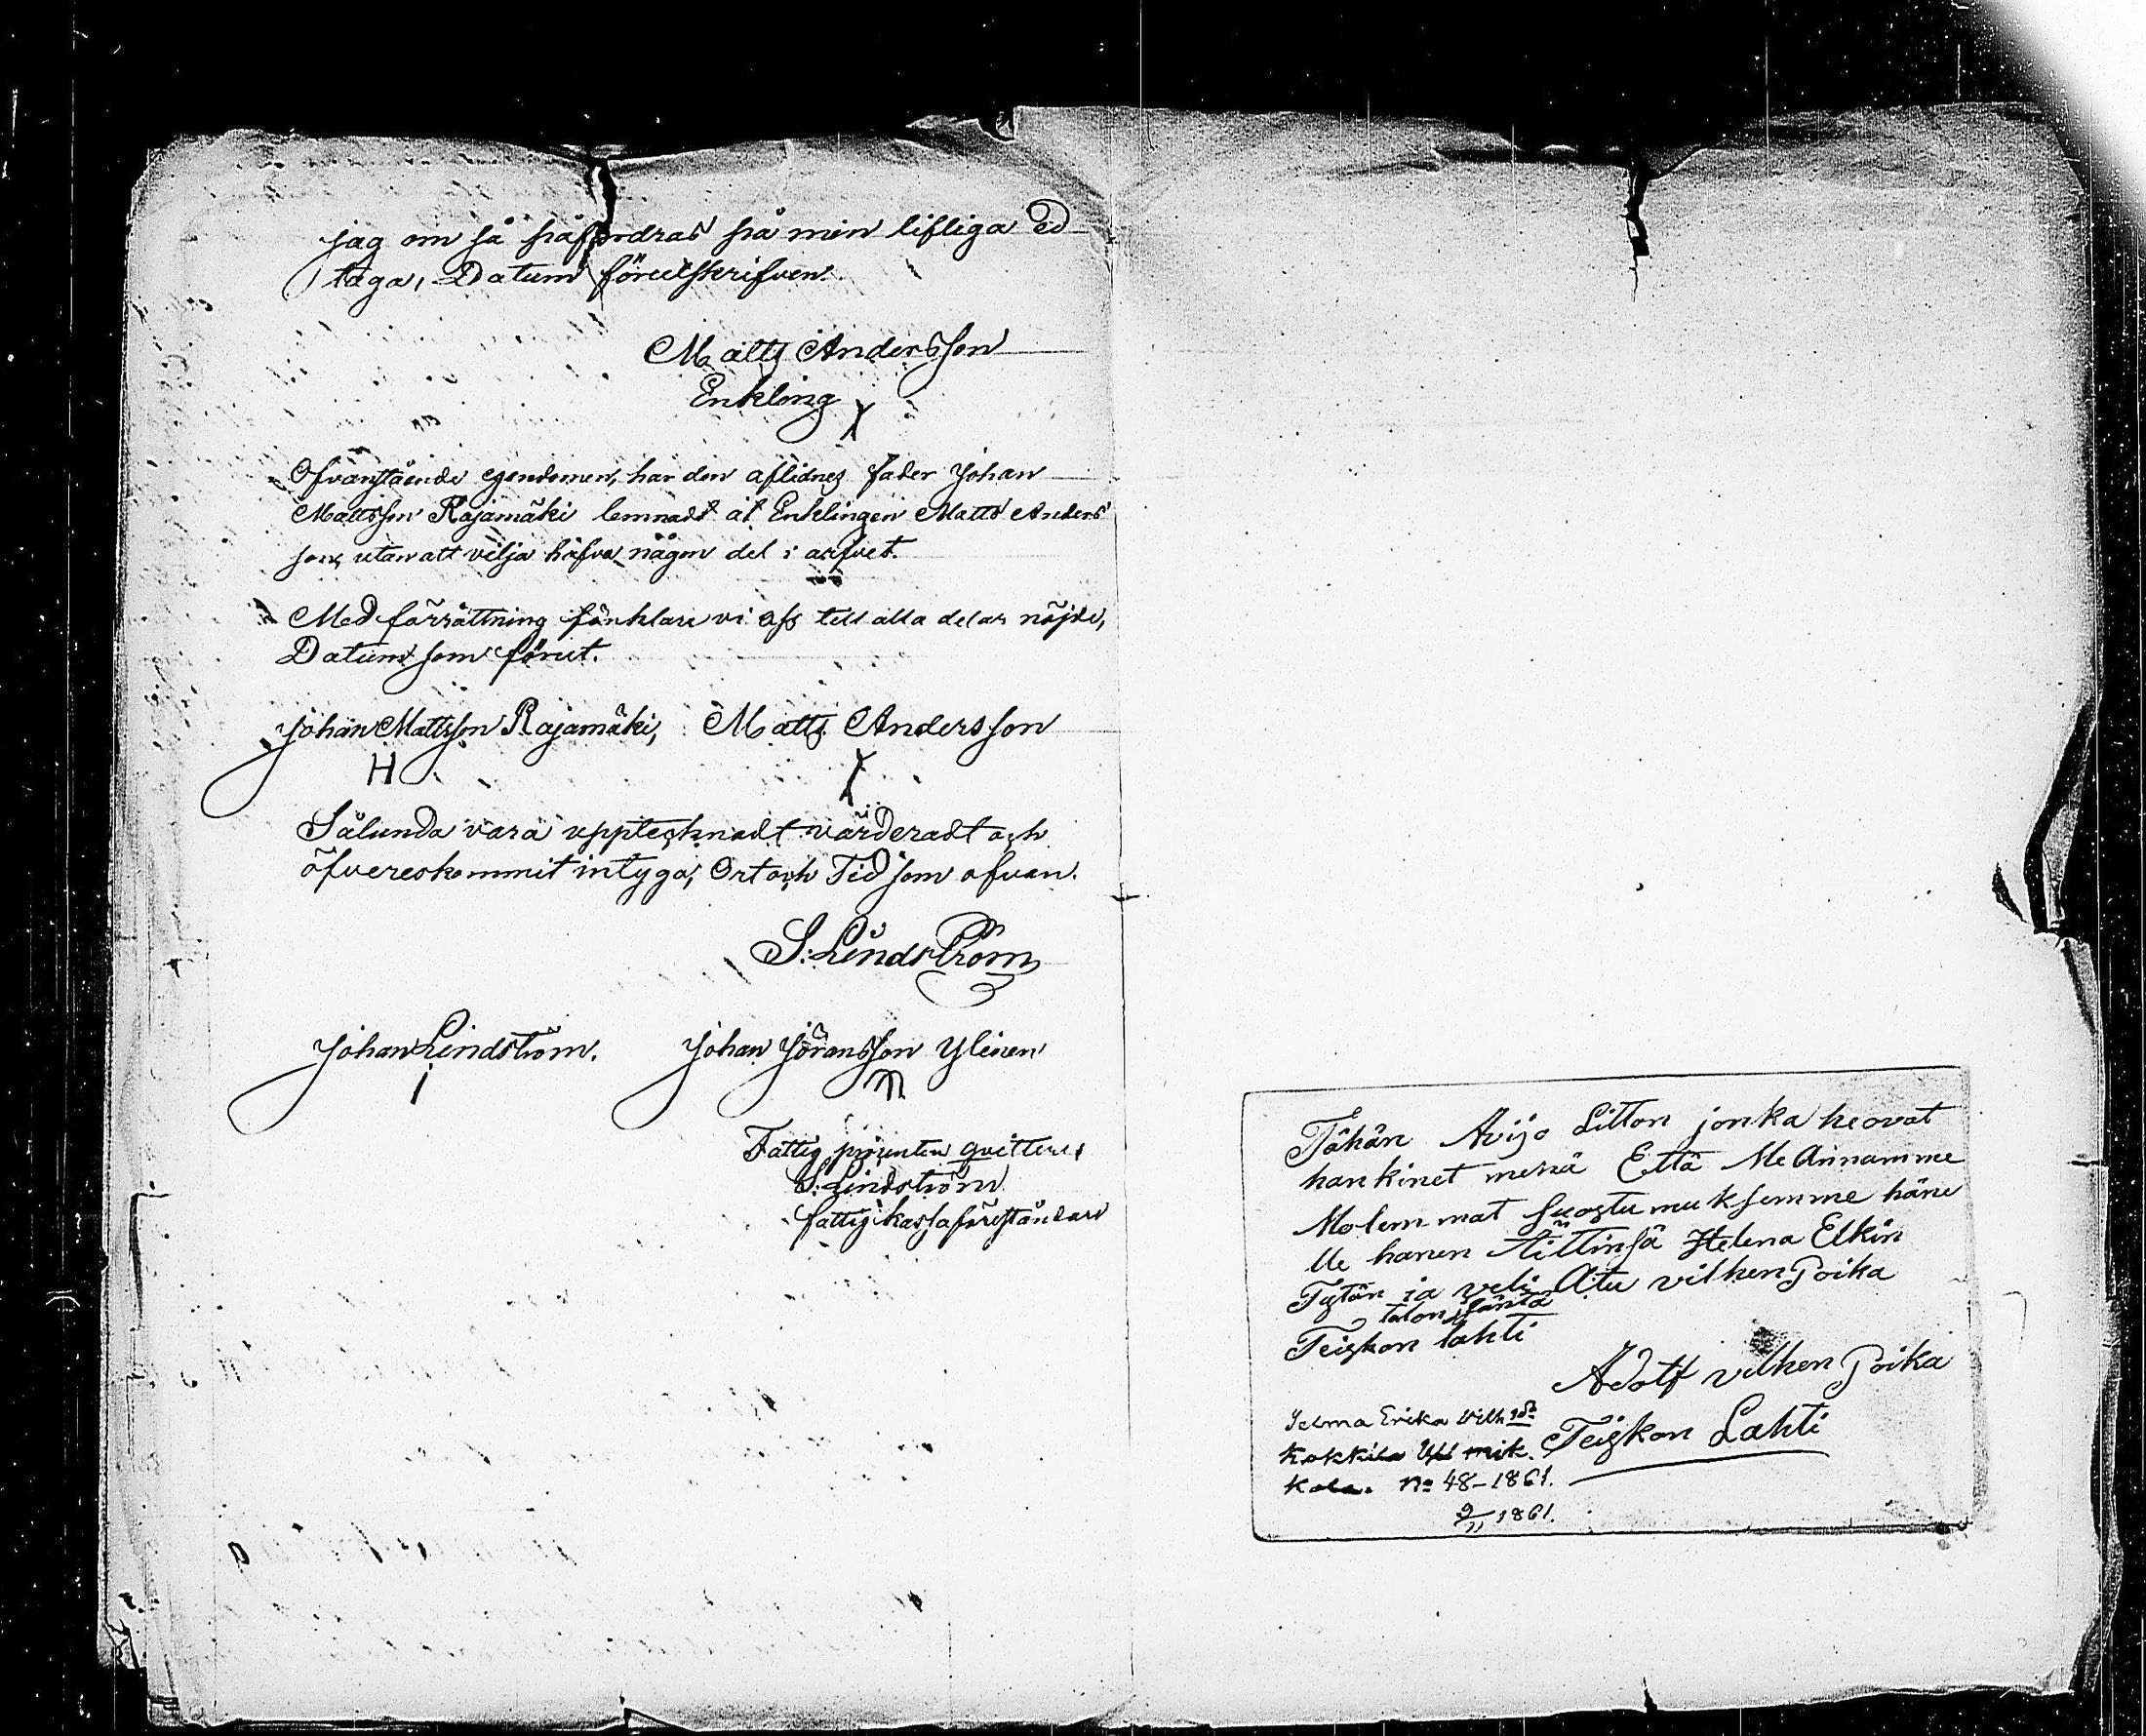 jag om så påfordras på min lifliga Ed
taga, Datum föreelskrifven.
Matts Andersson
Enkling
Ofvanstående egendomen, har den aflidnes fader Johan
Mattsson Rajamäki lemnadt åt Enklingen Matts Anders
son, utan att vilja häfva någon del i arfvet.
Med förrättning förklare vi oss till alla delar nöjde,
Datum som förut.
Johan Mattsson Rajamäki, Matts Andersson
H
Sålunda vara uppteshnadt värderadt och
öfvereskommit intyga, Ort och Tid som ofvan.
S: Lindström
Johan Lindström. Johan Jöransson Ylinen
Fattig prosenten qvitteras
S: Lindström
fattigkassaföreståndare
Tähän Avijo Litton jonka heovat
hankinet menä Että Me Annamme
Molemmat suostumuksemme häne
lle hanen Äittinsä Helena Elkin
Tytön ja veli Atu vilhen Poika
talon isäntä
Teiskon lahti
Adolf vilhen Poika
Teiskon Lahti
Selma Erika Vilh sdr
Kokkila Upl mik.
Kola. No 48-1861.
9/11 1861.